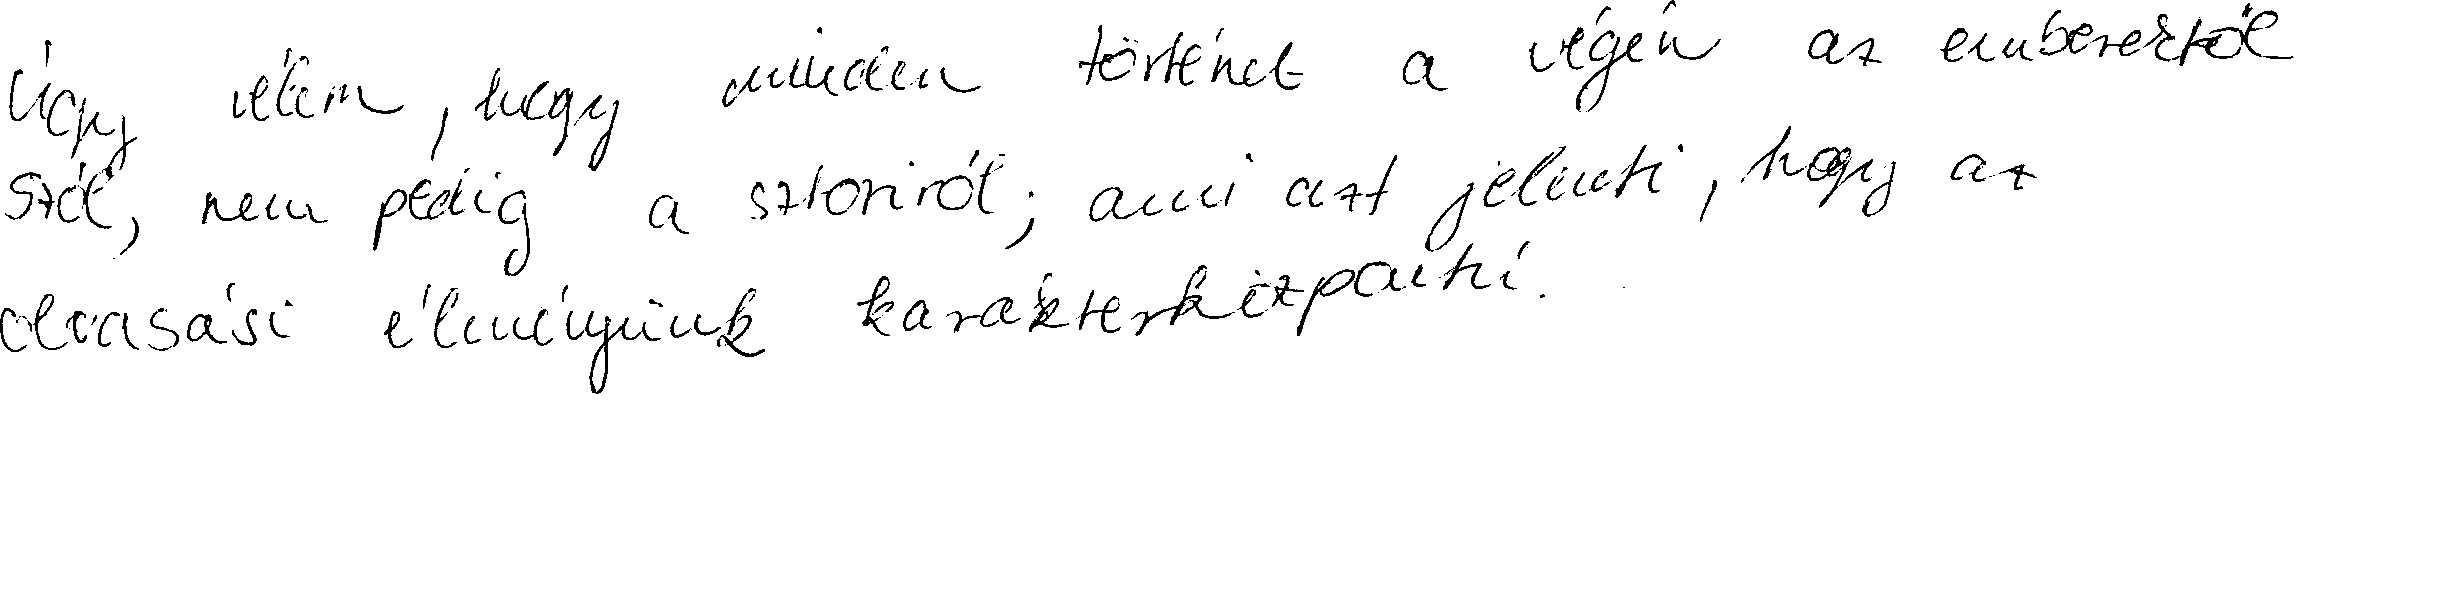 Úgy vélem, hogy minden történet a végén az emberektől
szól, nem pedig a sztoriról; ami azt jelenti, hogy az
olvasási élményünk karakterközpontú.